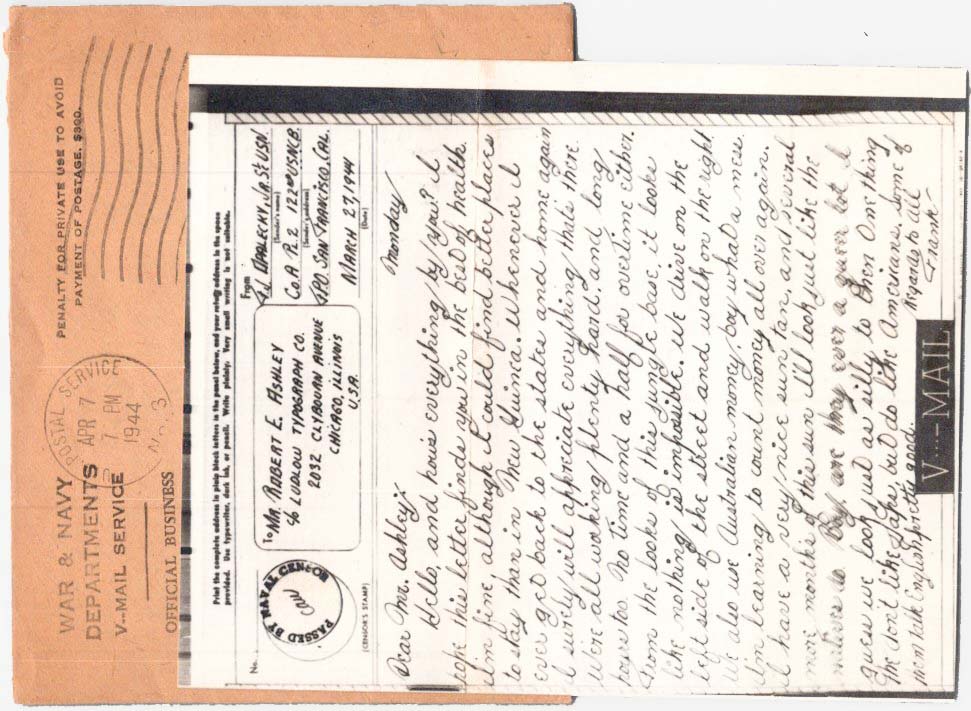 WAR & NAVY
DEPARTMENTS
V--MAIL SERVICE
OFFICIAL BUSINESS
POSTAL SERVICE
APR 7
7 PM
1944
No. 3
PENALTY FOR PRIVATE USE TO AVOID
PAYMENT OF POSTAGE, $300.
Print the complete address in plain block letters in the panel below, and your return address in the space
provided. Use typewriter, dark ink, or pencil. Write plainly. Very small writing is not suitable.
No.
PASSED BY NAVAL CENSOR
(CENSOR'S STAMP)
To MR. ROBERT E. ASHLEY
c/o LUDLOW TYPOGRAPH CO.
2032 CLYBOURN AVENUE
CHICAGO, ILLINOIS
U.S.A.
From
DARLECKY, JR. S1/c USN.
(Sender's name)
Co. A P. 2 122nd USNCB.
(Sender's address)
FPO SAN FRANCISCO, CAL.
MARCH 27, 1944
(Date)
Monday
Dear Mr. Ashley:
Hello, and hows everything by you? I
hope this letter finds you in the best of health
I'm fine, although I could find better places
to stay than in New Guinea. Whenever I
ever get back to the states and home again
I surely will appreciate everything thats there.
We're all working plenty hard, and long
hours too. No time and a half for overtime either.
From the looks of this jungle base it looks
like nothing is impossible. We drive on the
left side of the street and walk on the right
We also use Australian money, boy what a mess
I'm learning to count money all over again.
I have a very nice sun tan, and several
more months of this sun I'll look just like the
natives do. Boy are they ever a queer lot I
guess we look just as silly to them One thing
The don't like Japs, but do like Americans, some of
them talk English pretty good.
Regards to all
Frank
V···—MAIL